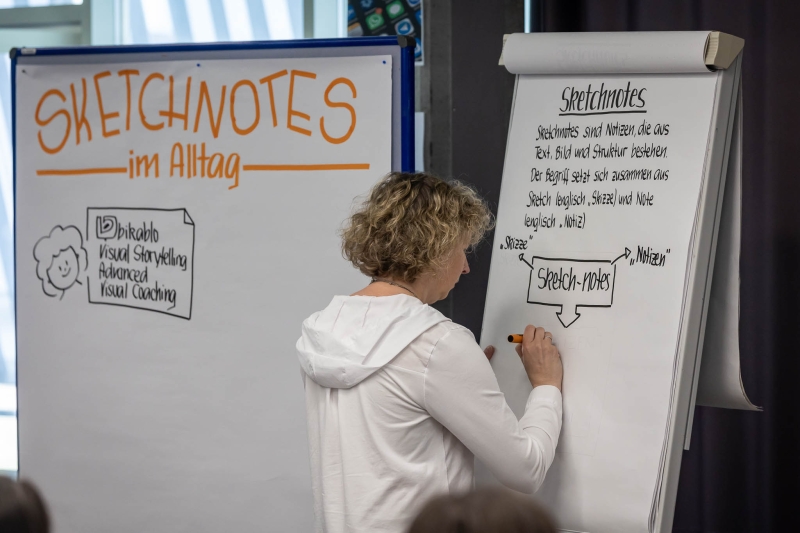 SKETCHNOTES
im Alltag
bikablo
Visual Storytelling
Advanced
Visual Coaching
Sketchnotes
Sketchnotes sind Notizen, die aus
Text, Bild und Struktur bestehen.
Der Begriff setzt sich zusammen aus
Sketch (englisch „Skizze) und Note
(englisch „Notiz)
„Skizze"
„Notizen"
Sketch-notes